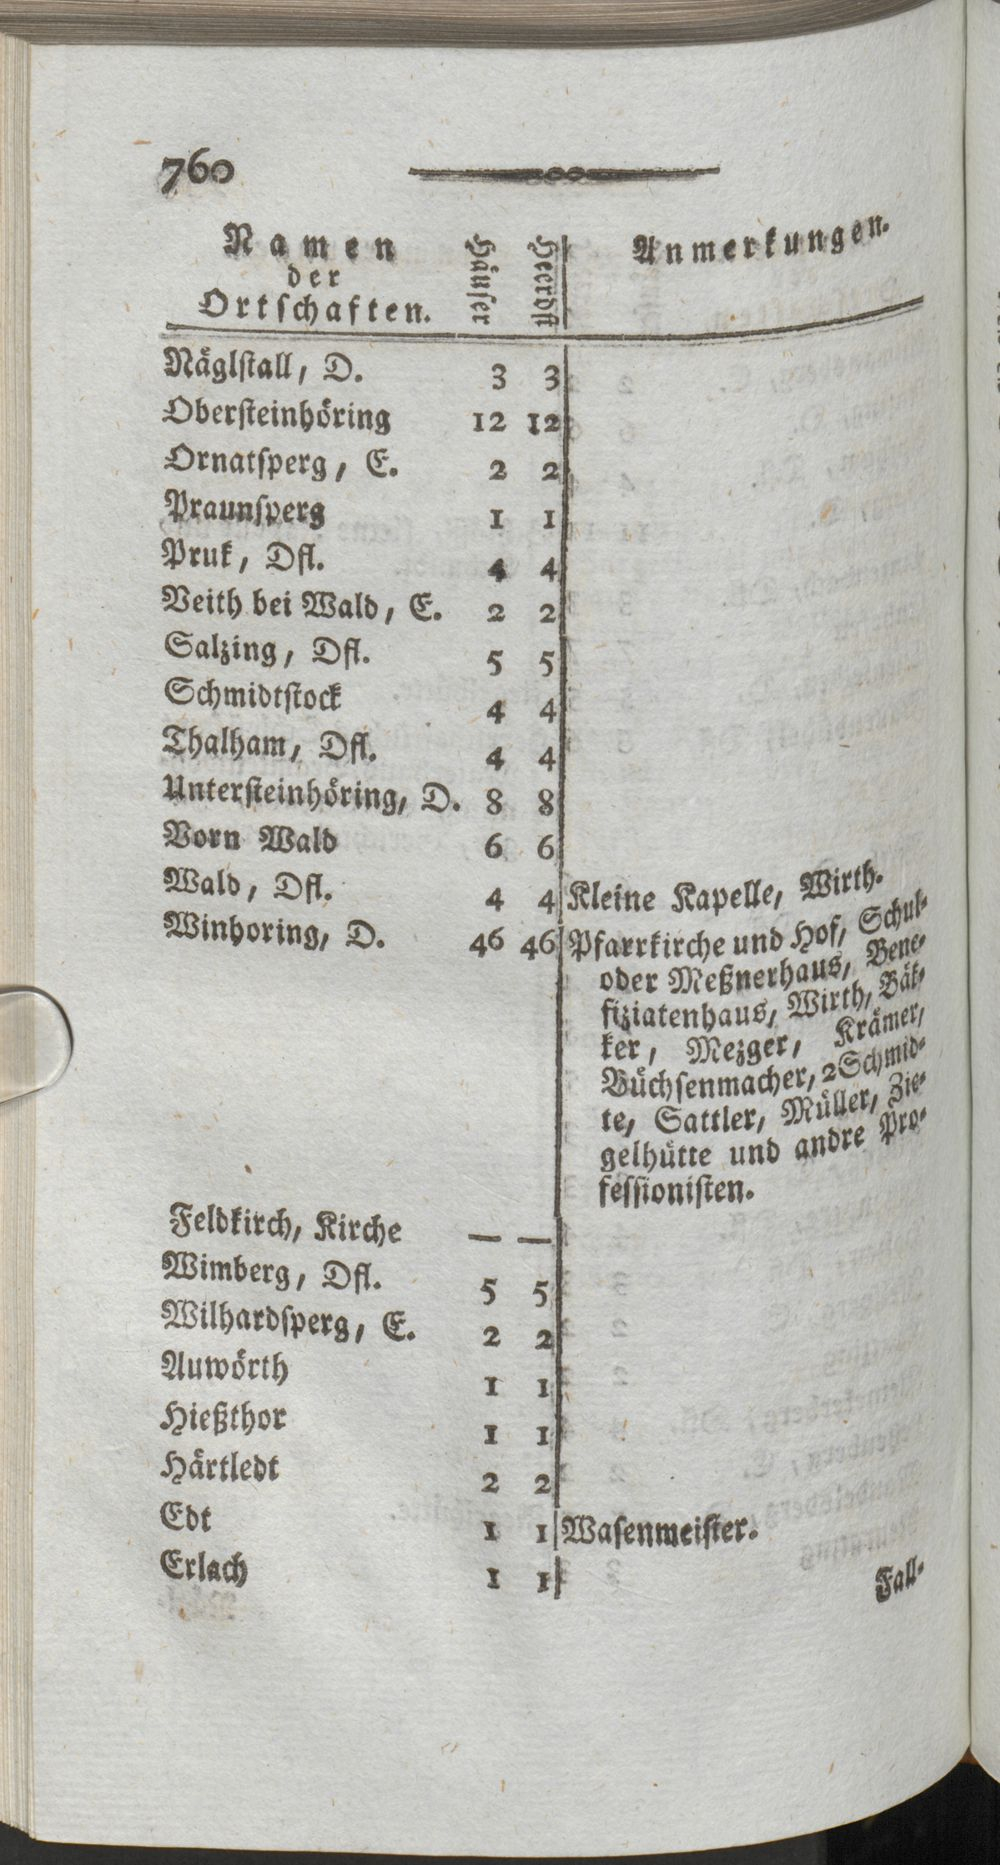 760
Namen Häuser Heerdst Anmerkungen.
der
Ortschaften.
Näglstall, D. 3 3
Obersteinhöring 12 12
Ornatsperg, E. 2 2
Praunsperg 1 1
Pruk, Dfl. 4 4
Veith bei Wald, E. 2 2
Salzing, Dfl. 5 5
Schmidtstock 4 4
Thalham, Dfl. 4 4
Untersteinhöring, D. 8 8
Vorn Wald 6 6
Wald, Dfl. 4 4 Kleine Kapelle, Wirth.
Winhoring, D. 46 46 Pfarrkirche und Hof, Schul-
oder Meßnerhaus, Bene-
fiziatenhaus, Wirth, Bäk-
ker, Mezger, Krämer,
Büchsenmacher, 2 Schmid-
te, Sattler, Müller, Zie-
gelhütte und andre Pro-
fessionisten.
Feldkirch, Kirche — —
Wimberg, Dfl. 5 5
Wilhardsperg, E. 2 2
Auwörth 1 1
Hießthor 1 1
Härtledt 2 2
Edt 1 1 Wasenmeister.
Erlach 1 1
Fall-